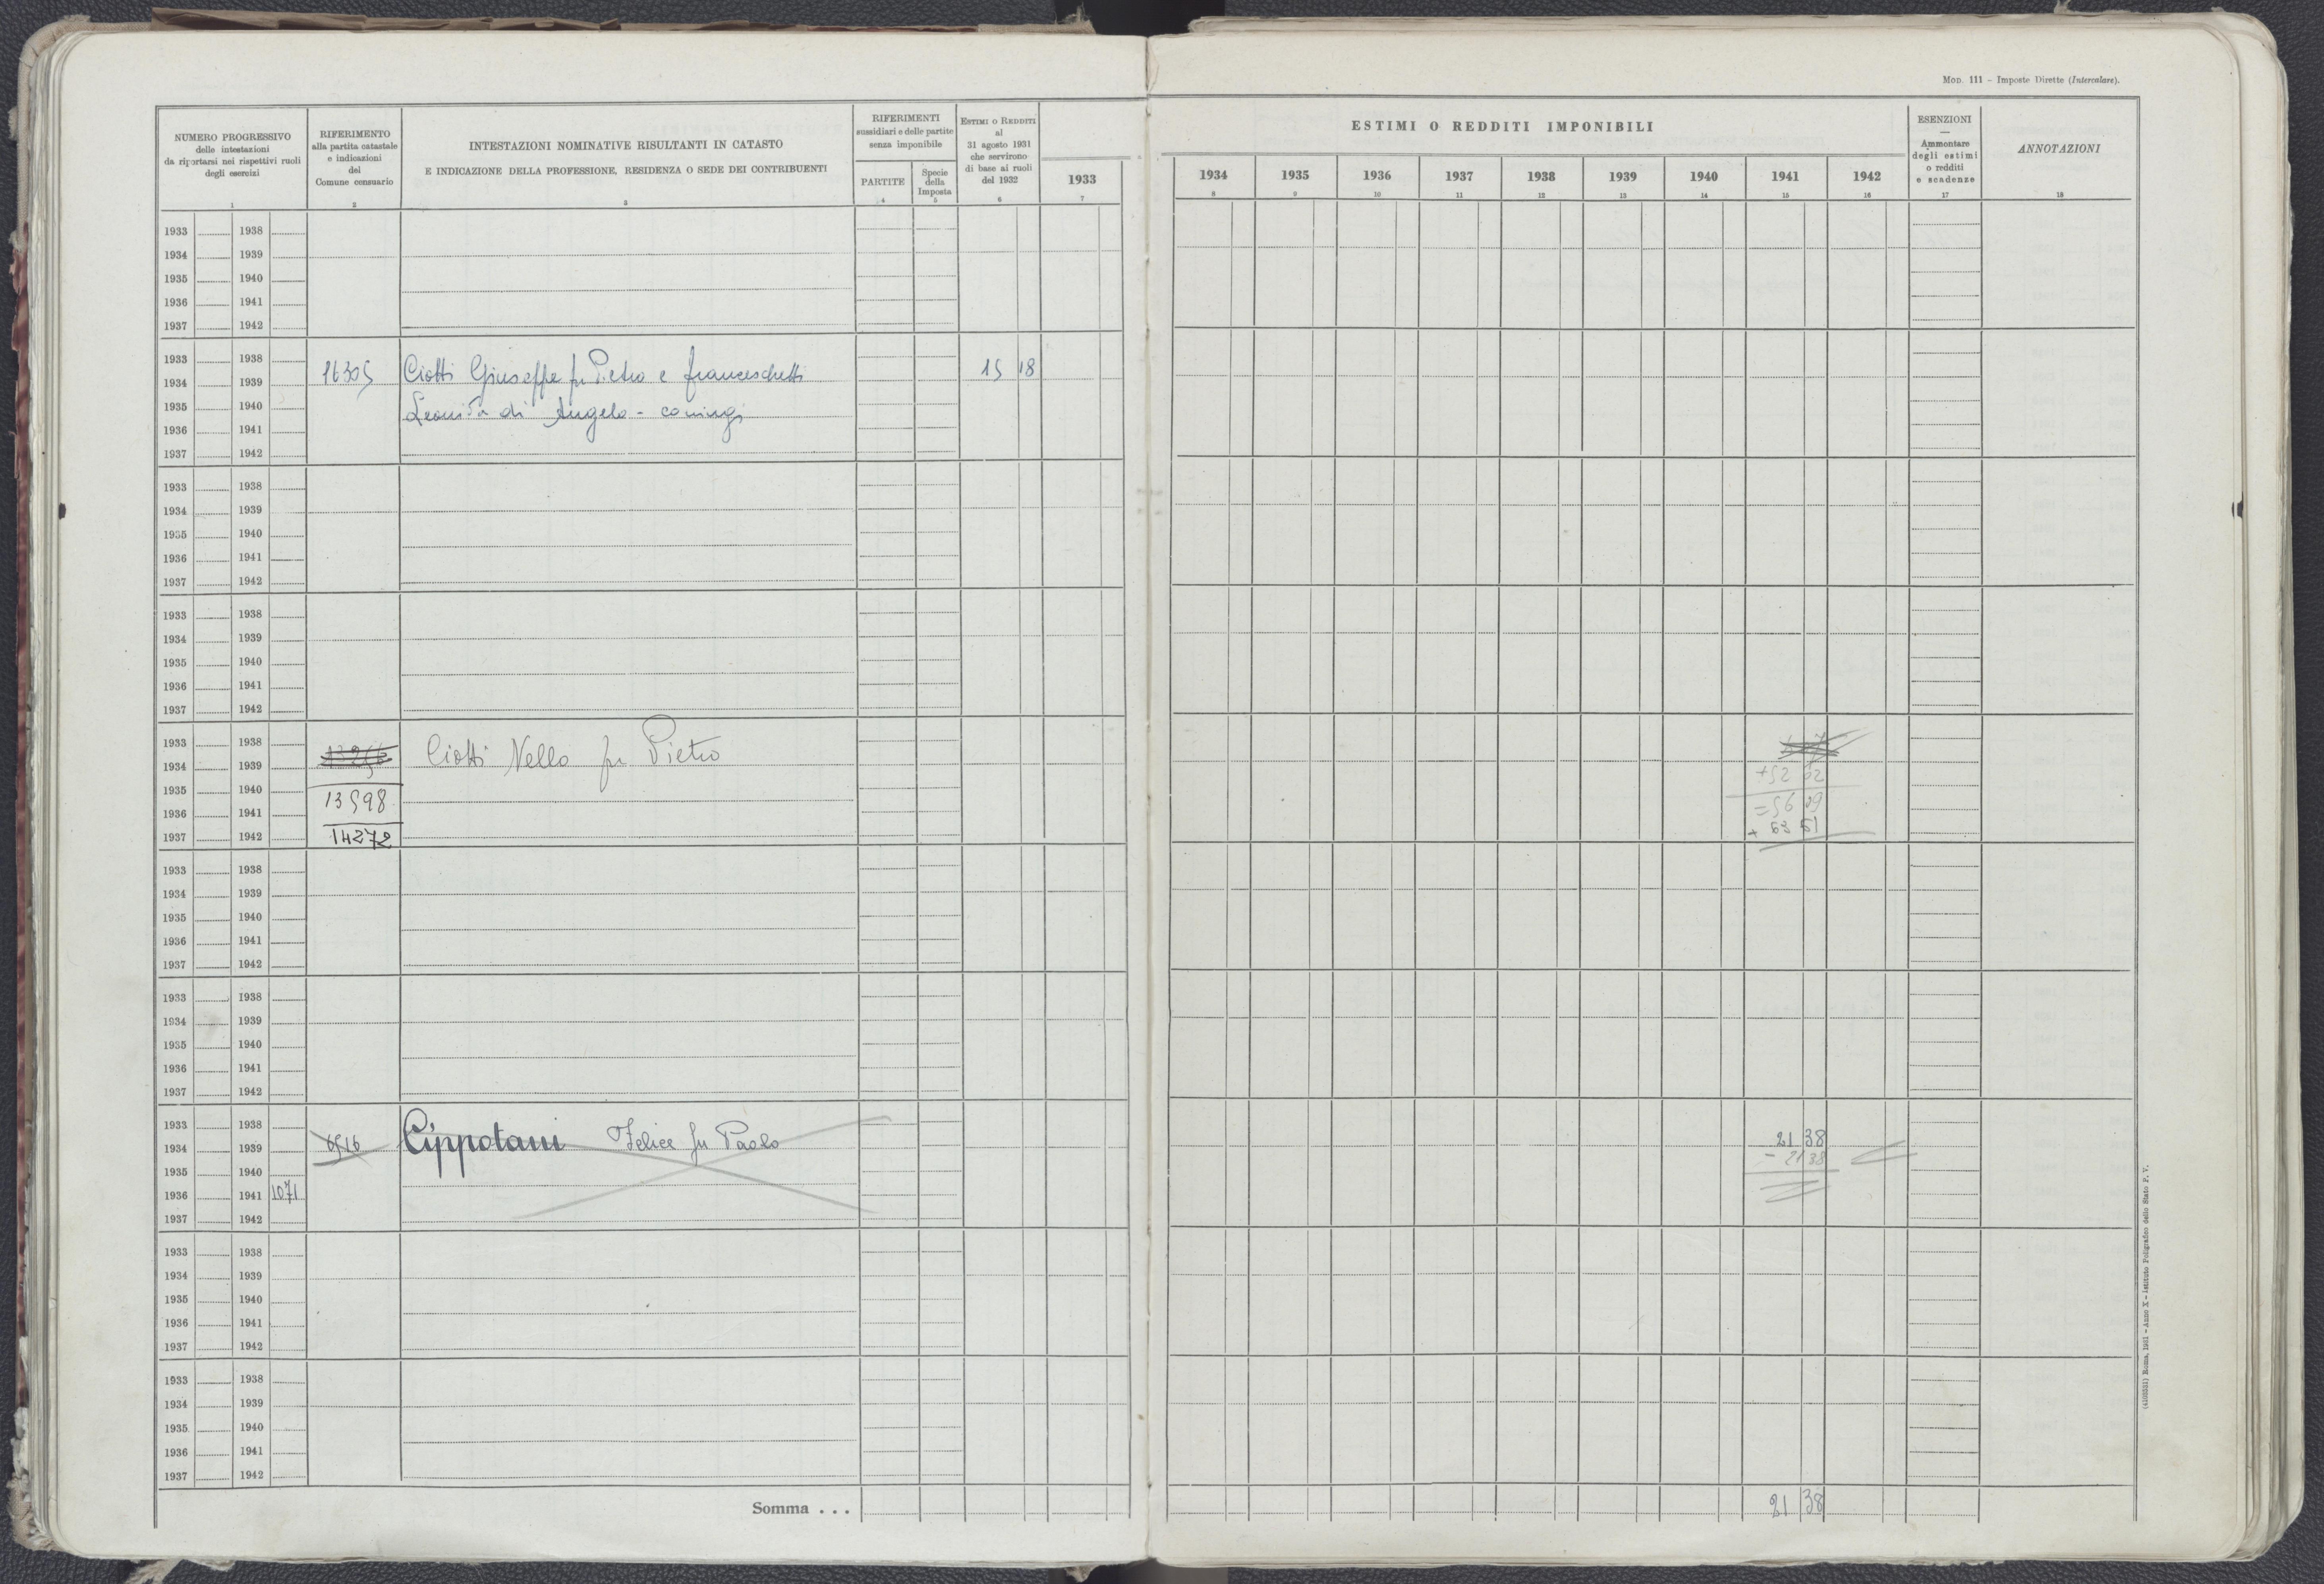 MOD. 111 - Imposte Dirette (Intercalare).
NUMERO PROGRESSIVO
delle intestazioni
da riportarsi nei rispettivi ruoli
degli esercizi
1
RIFERIMENTO
alla partita catastale
e indicazioni
del
Comune censuario
2
INTESTAZIONI NOMINATIVE RISULTANTI IN CATASTO
E INDICAZIONE DELLA PROFESSIONE, RESIDENZA O SEDE DEI CONTRIBUENTI
3
RIFERIMENTI
sussidiari e delle partite
senza imponibile
PARTITE
4
Specie
della
Imposta
5
ESTIMI O REDDITI
al
31 agosto 1931
che servirono
di base ai ruoli
del 1932
6
1933
7
ESTIMI O REDDITI IMPONIBILI
1934 1935 1936 1937 1938 1939 1940 1941 1942
8 9 10 11 12 13 14 15 16
ESENZIONI
—
Ammontare
degli estimi
o redditi
e scadenze
17
ANNOTAZIONI
18
1933 1938
1934 1939
1935 1940
1936 1941
1937 1942
1933 1938
16305 Ciotti Giuseppe fu Pietro e Franceschetti 15 18
1934 1939
1935 1940
di Angelo - coniugi
1936 1941
1937 1942
1933 1938
1934 1939
1935 1940
1936 1941
1937 1942
1933 1938
1934 1939
1935 1940
1936 1941
1937 1942
1933 1938
Ciotti Nello fu Pietro
1934 1939
+52 62
1935 1940
13598
=56 29
1936 1941
+ 63 61
1937 1942 14272
1933 1938
1934 1939
1935 1940
1936 1941
1937 1942
1933 1938
1934 1939
1935 1940
1936 1941
1937 1942
1933 1938
6516 Cippotani Felice fu Paolo 21 38
1934 1939
- 21 38
1935 1940
1936 1941 1071
1937 1942
1933 1938
1934 1939
1935 1940
1936 1941
1937 1942
1933 1938
1934 1939
1935 1940
1936 1941
1937 1942
Somma . . . 21 38
Roma, 1931 - Anno X - Istituto Poligrafico dello Stato P. V.